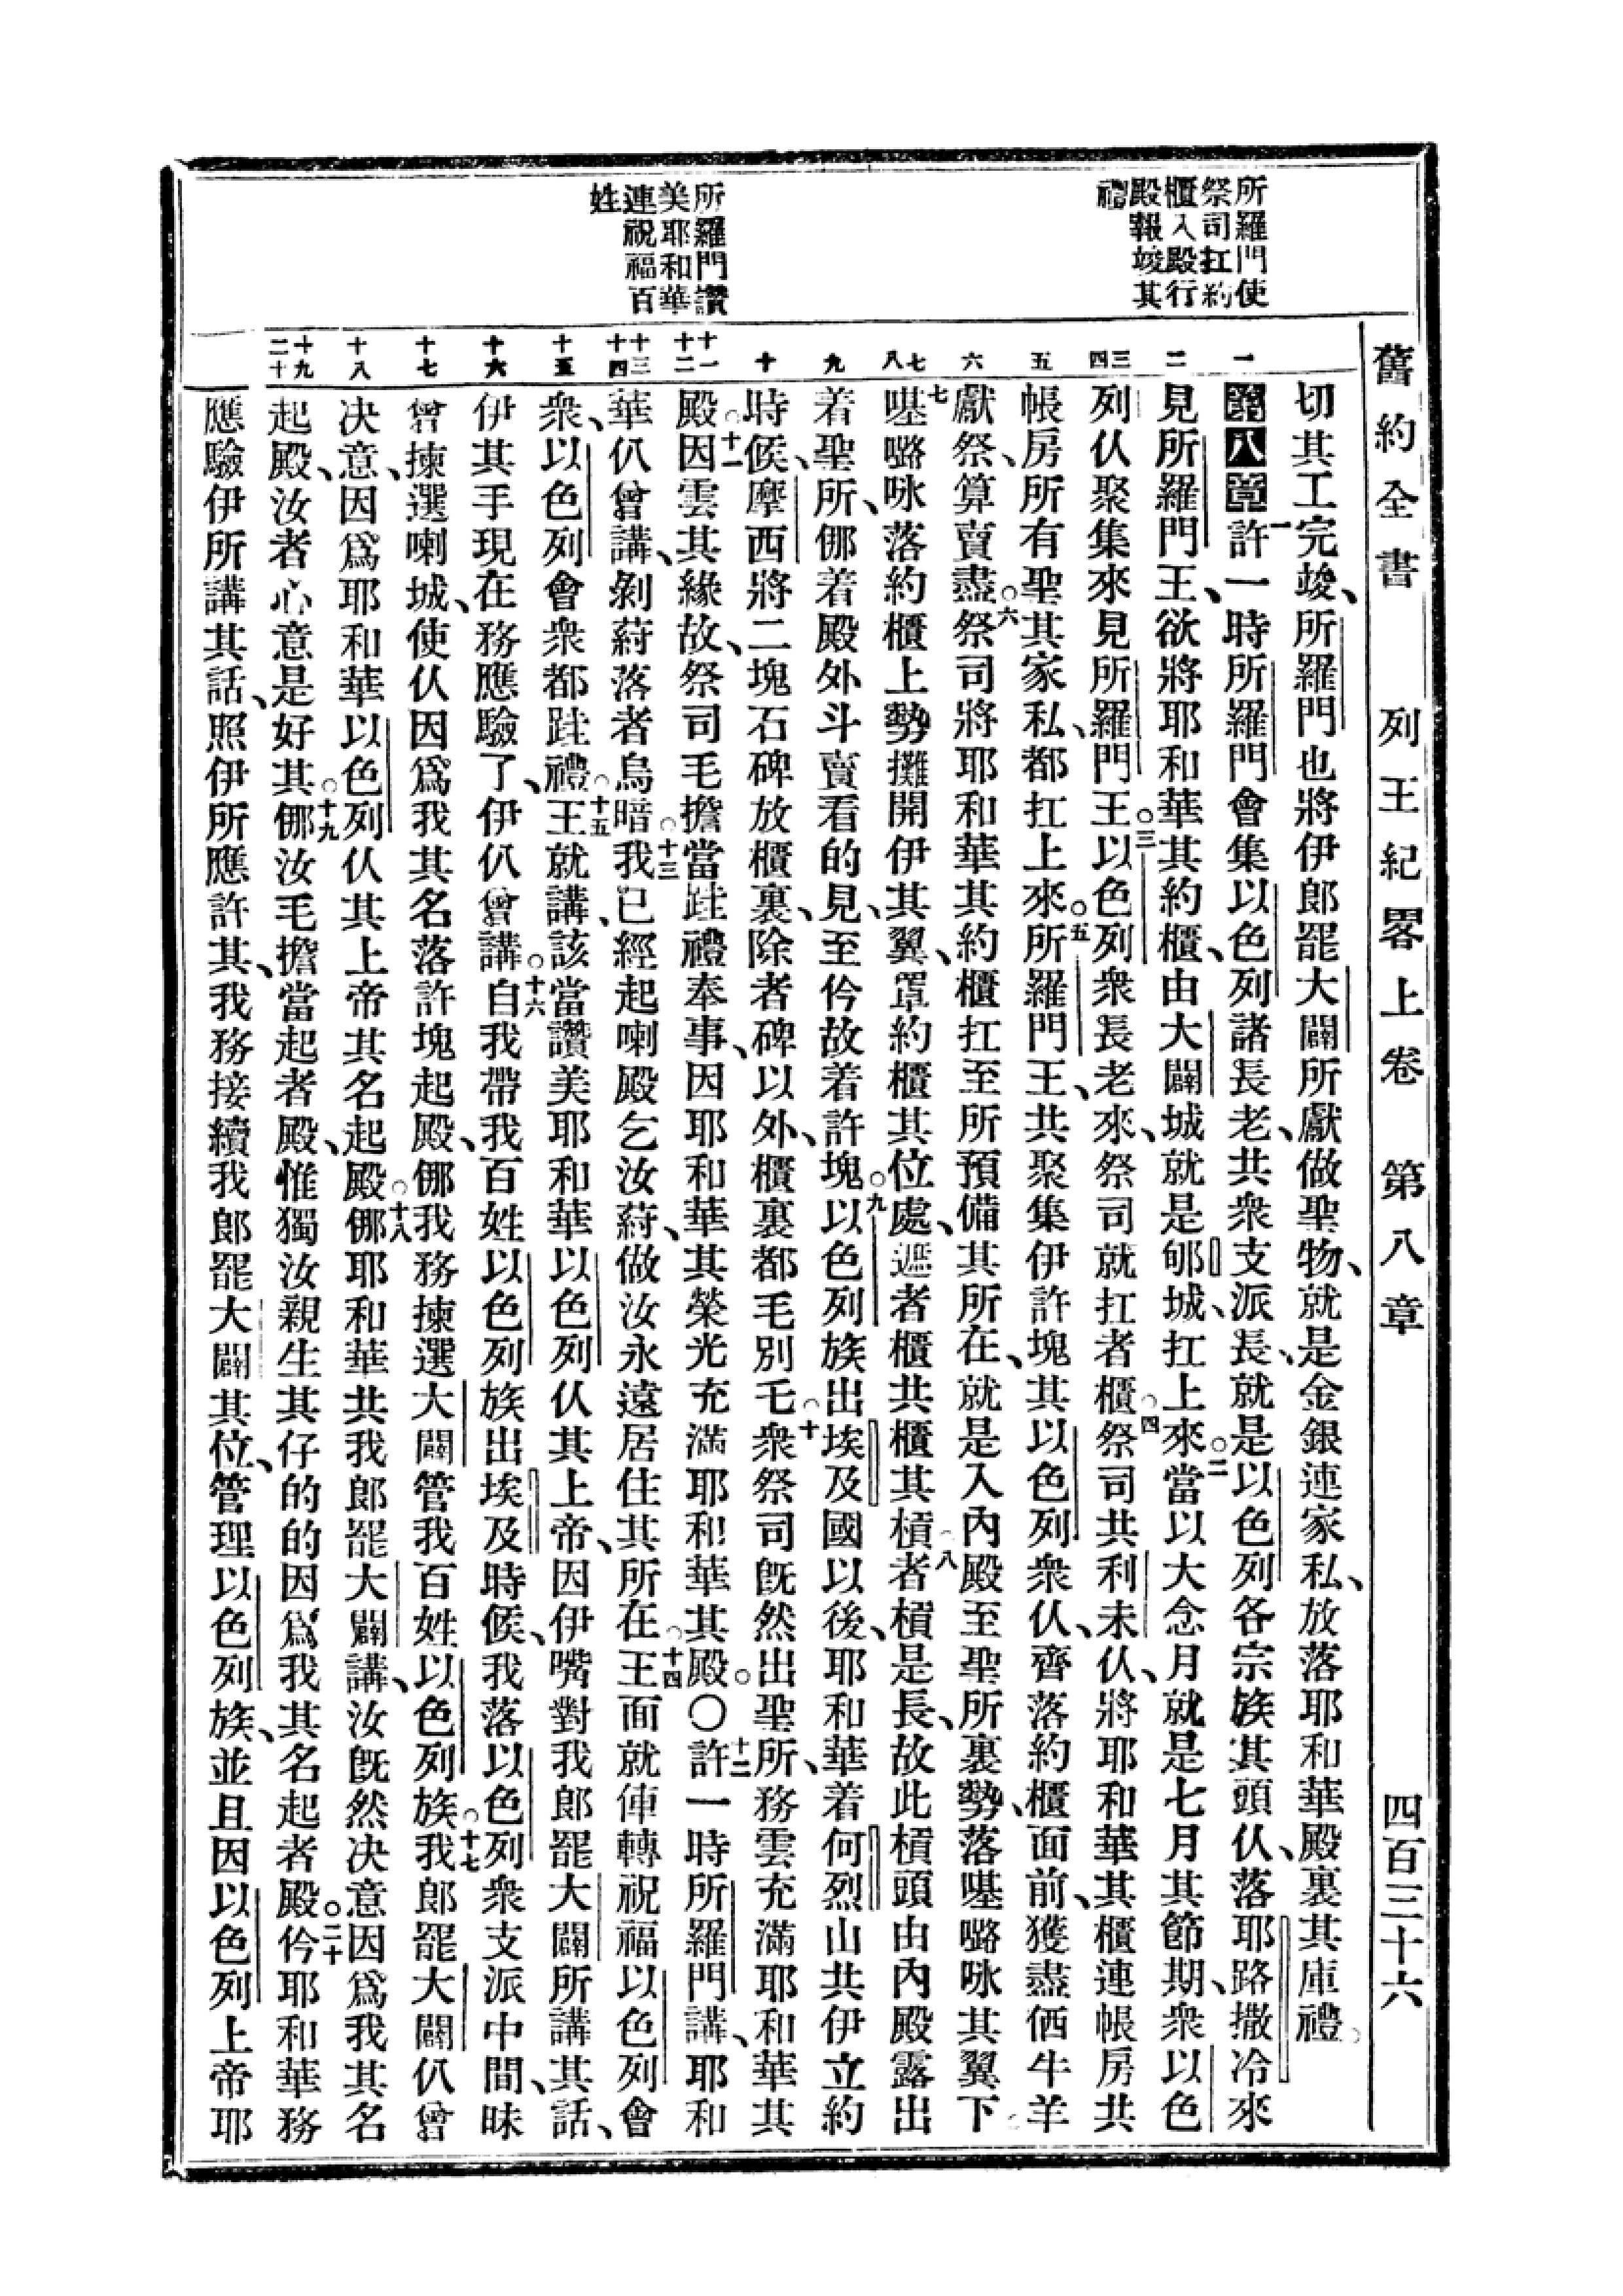 舊約全書 列王紀畧上卷 第八章 四百三十六
所羅門使
祭司扛約
櫃入殿行
殿報竣其
禮
所羅門讚
美耶和華
連祝福百
姓
一
二
三
四
五
六
七
八
九
十
十一
十二
十三
十四
十五
十六
十七
十八
十九
二十
切其工完竣、所羅門也將伊郎罷大闢所獻做聖物、就是金銀連家私、放落耶和華殿裏其庫禮。
第八章一許一時所羅門會集以色列諸長老、共衆支派長、就是以色列各宗族其頭仈、落耶路撒冷來
見所羅門王、欲將耶和華其約櫃、由大闢城就是郇城、扛上來。二當以大念月就是七月其節期、衆以色
列仈聚集來見所羅門王。三以色列衆長老來、祭司就扛者櫃。四祭司共利未仈、將耶和華其櫃連帳房共
帳房所有聖其家私、都扛上來。五所羅門王、共聚集伊許塊其以色列衆仈、齊落約櫃面前、獲盡牺牛羊
獻祭、算賣盡。六祭司將耶和華其約櫃扛至所預備其所在、就是入內殿至聖所裏勢、落𠺙㗉咏其翼下。
七𠺙㗉咏落約櫃上勢攤開伊其翼、罩約櫃其位處、遮者櫃共櫃其槓。八者槓是長、故此槓頭由內殿露出
着聖所、㑚着殿外斗賣看的見、至仱故着許塊。九以色列族出埃及國以後、耶和華着何烈山共伊立約
時候、摩西將二塊石碑放櫃裏、除者碑以外、櫃裏都毛別乇。十衆祭司旣然出聖所、務雲充滿耶和華其
殿。十一因雲其緣故、祭司毛擔當跬禮奉事、因耶和華其榮光充滿耶和華其殿。〇十二許一時所羅門講、耶和
華仈曾講、剝葤落者烏暗。十三我已經起喇殿乞汝葤、做汝永遠居住其所在。十四王面就俥轉祝福以色列會
衆、以色列會衆都跬禮。十五王就講、該當讚美耶和華以色列仈其上帝、因伊嘴對我郎罷大闢所講其話、
伊其手現在務應驗了、伊仈曾講。十六自我帶我百姓以色列族出埃及時候、我落以色列衆支派中間、昧
曾揀選喇城、使仈因爲我其名落許塊起殿、㑚我務揀選大闢管我百姓以色列族。十七我郎罷大闢仈曾
决意、因爲耶和華以色列仈其上帝其名起殿。十八㑚耶和華共我郎罷大闢講、汝旣然决意因爲我其名
起殿、汝者心意是好其。十九㑚汝毛擔當起者殿、惟獨汝親生其仔的的因爲我其名起者殿。二十仱耶和華務
應驗伊所講其話、照伊所應許其、我務接續我郎罷大闢其位、管理以色列族、並且因以色列上帝耶